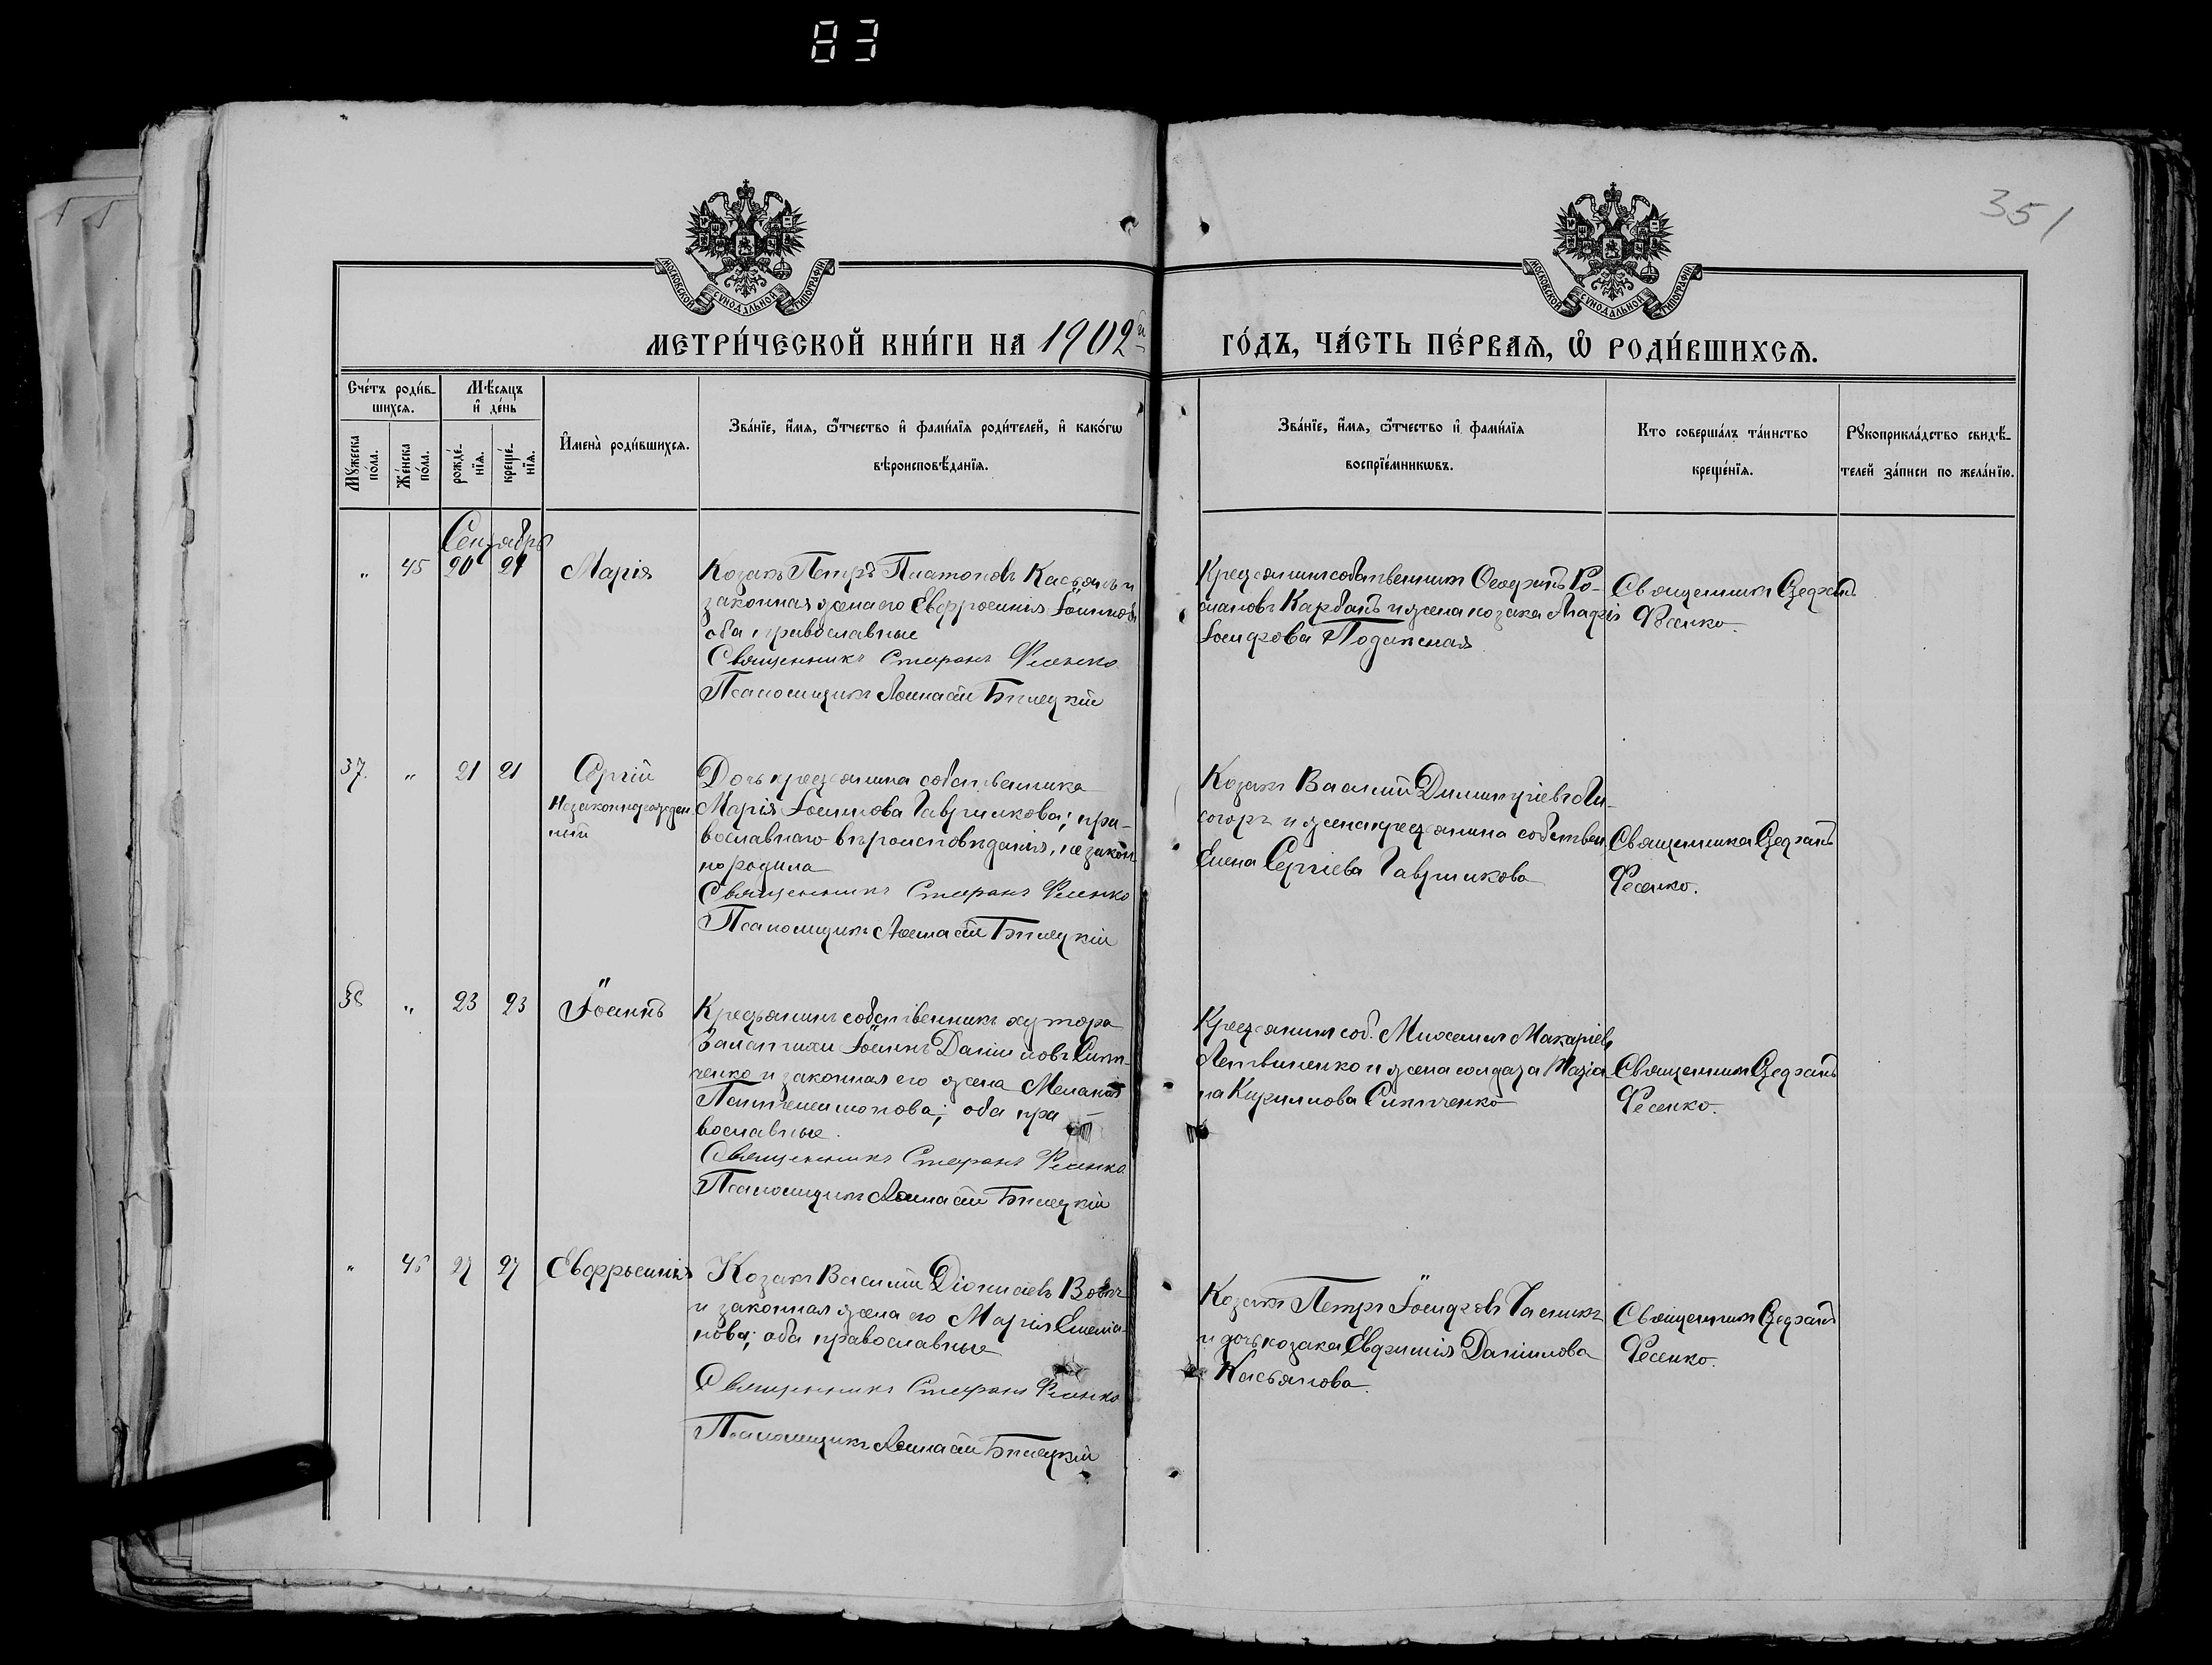 83
351
МОСКОВСКОЙ СѴНОДАЛЬНОЙ ТИПОГРАФІИ
МОСКОВСКОЙ СѴНОДАЛЬНОЙ ТИПОГРАФІИ
МЕТРИ́ЧЕСКОЙ КНИ́ГИ НА 1902й
ГО́ДЪ, ЧА́СТЬ ПЕ́РВАЯ, Ѡ҆ РОДИ́ВШИХСѦ.
Сче́тъ роди́в-
шихся.
Мѣ́сяцъ
и҆ де́нь
Мꙋ́жеска
по́ла.
Же́нска
по́ла.
рожде́-
нїѧ.
креще́-
нїѧ.
И҆мена̀ роди́вшихсѧ.
Зва́нїе, и҆́мѧ, ѻ҆́тчество и҆ фами́лїѧ роди́телей, и҆ како́гѡ
вѣроисповѣ́данїѧ.
Зва́нїе, и҆́мѧ, ѻ҆́тчество и҆ фами́лїѧ
воспрїе́мникѡвъ.
Кто соверша́лъ та́инство
креще́нїѧ.
Рꙋкоприкла́дство свидѣ́-
телей за́писи по жела́нїю.
Сентябрь
" 45 20 21 Марія
Козакъ Петръ Платоновъ Касьянъ и
законная жена его Евфросинія Іоаннова
оба православные
Священникъ Стефанъ Фесенко
Псаломщикъ Бѣлецкій
Крестьянинъ собственникъ Ро-
мановъ Карбанъ и жена козака Марія
Іосифова
Священникъ Стефанъ
Фесенко.
37. " 21 21 Сергій
Незаконнорожден-
ный
Дочь крестьянина собственника
Марія Іоаннова Гаврикова; пра-
вославнаго вѣроисповѣданія, незакон-
но родила
Священникъ Стефанъ Фесенко
Псаломщикъ Бѣлецкій
Козакъ Василій Димитріевъ Ли-
согоръ и жена крестьянина собствен.
Елена Сергіева Гаврикова
Священникъ Стефанъ
Фесенко.
38 " 23 23 Іоаннъ
Крестьянинъ собственникъ хутора
Іоаннъ Даніиловъ Ситни-
ченко и законная его жена Меланія
Пантелеимонова; оба пра-
вославные.
Священникъ Стефанъ Фесенко
Псаломщикъ Бѣлецкій
Крестьянинъ соб. Михаилъ Макаріевъ
Литвиненко и жена солдата
на Кириллова Ситниченко
Священникъ Стефанъ
Фесенко.
" 46 27 27 Евфросинія
Козакъ Василій Діонисіевъ Вовкъ
и законная жена его Марія Емелія-
нова; оба православные
Священникъ Стефанъ Фесенко
Псаломщикъ Бѣлецкій
Козакъ Петръ Іосифовъ
и дочь козака Евфимія Даніилова
Касьянова.
Священникъ Стефанъ
Фесенко.